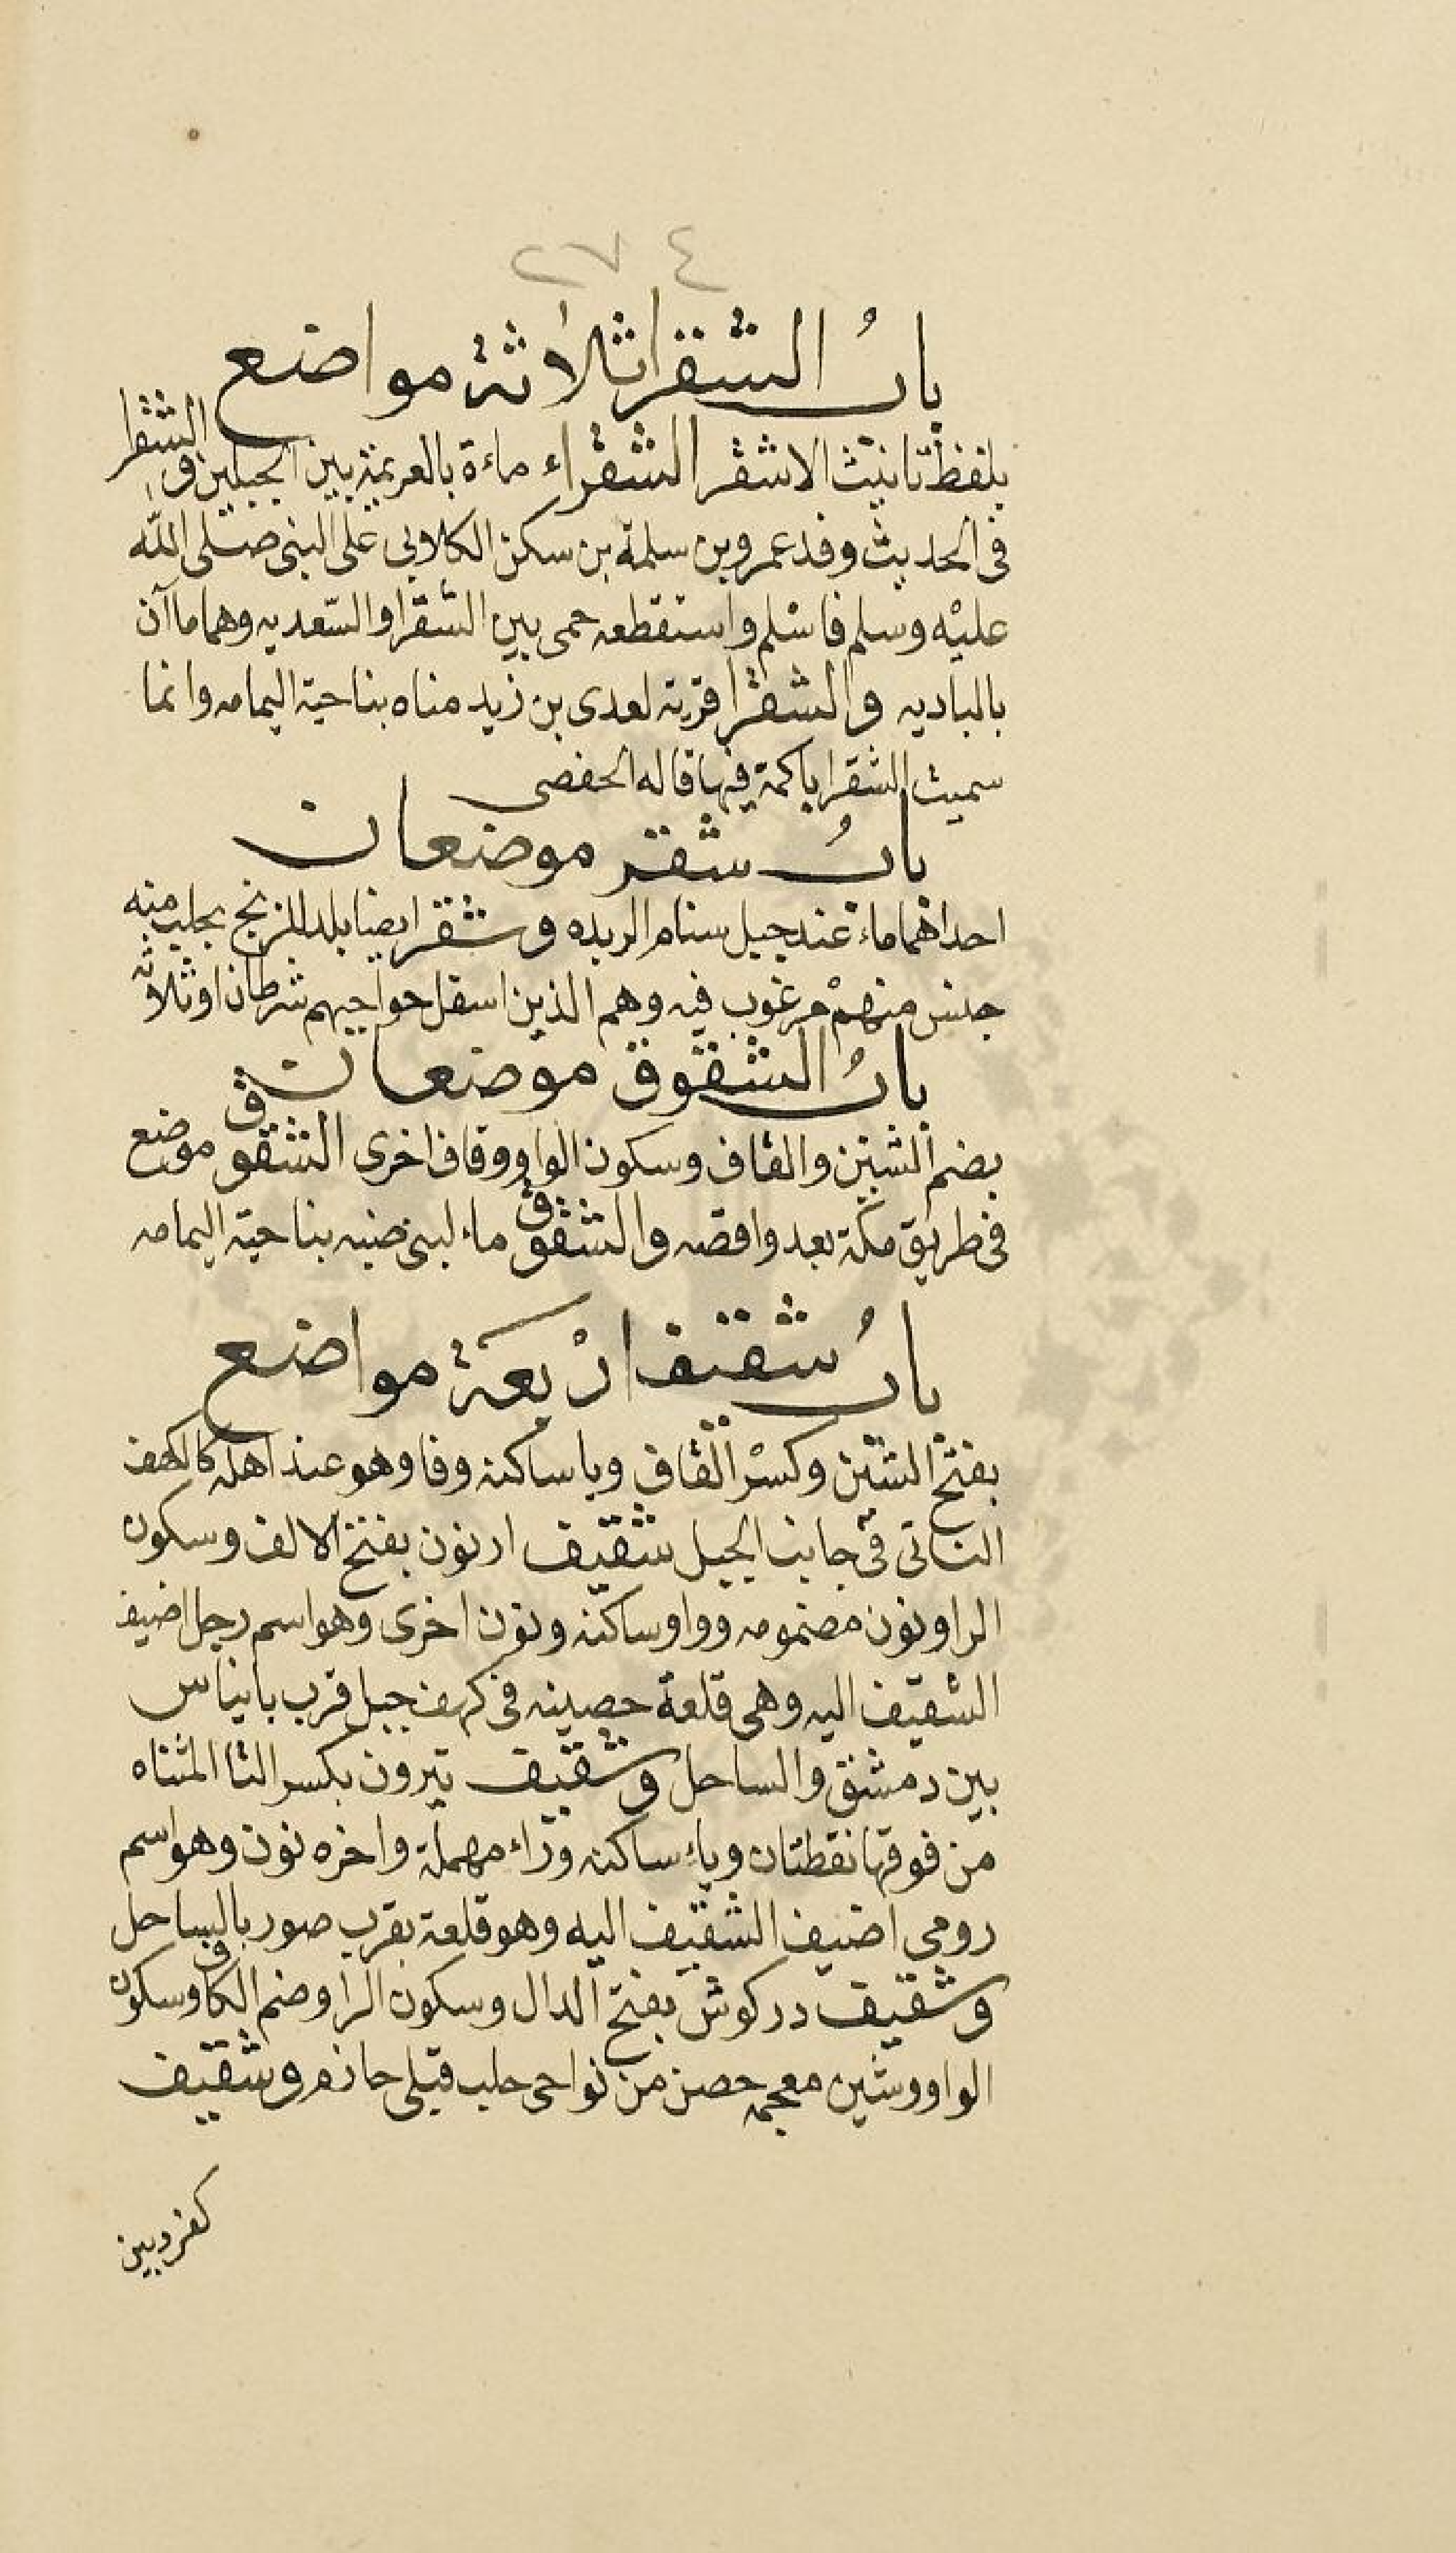 ٢٧٤
بابُ الشقرا ثلاثة مواضع
بلفظ تانيث الاشقر الشقراء ماءة بالعريمة بين الجبلين و الشقرا
فى الحديث وفد عمرو بن سلمة بن سكن الكلابى على النبى صلى الله
عليْه وسلم فاسْلم واستقطعه حمى بين الشقرا والسّعديه وهما ماآن
بالباديه والشقرا قرية لعدى بن زيد مناه بناحية اليمامه وانما
سميت الشقرا باكمة فيها قاله الحفصى
بابُ شقر موضعان
احداهما ماء عند جبل سنام الربده وشقر ايضا بلد للزنج يجلب منه
جنس منهمْ مرغوب فيه وهم الذين اسفل حواجبهم شرطان او ثلاثه
بابُ الشقوق موضعان
بضم الشين والقاف وسكون الواو وقاف اخرى الشقوق موضع
فى طريق مكة بعد واقصه والشقوق ماء لبنى ضبه بناحية اليمامه
بابُ شقيف ارْبعة مواضع
بفتح الشين وكسْر القاف ويا ساكنه وفا وهو عند اهله كالكهف
الناتى فى جانب الجبل شقيف ارنون بفتح الالف وسكون
الرا ونون مضمومه وواو ساكنه ونون اخرى وهو اسم رجل اضيف
الشقيف اليه وهى قلعة حصينه فى كهف جبل قرب بانياس
بين دمشق والساحل وشقيف تيرون بكسر التا المثناه
من فوقها نقطتان وياء ساكنه وراء مهملة واخره نون وهو اسم
رومى اضيف الشقيف اليه وهو قلعة بقرب صور بالساحل
وشقيف دركوش بفتح الدال وسكون الرا وضم الكاف وسكون
الواو وشين معجمه حصن من نواحى حلب قبلى حازم وشقيف
كفردبين